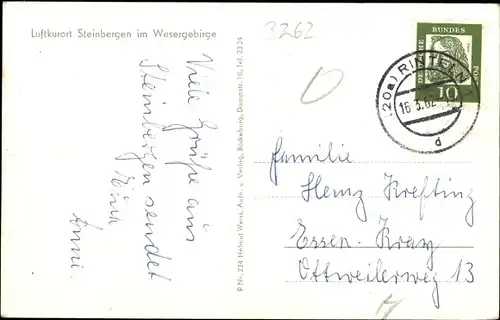 Luftkurort Steinbergen im Wesergebirge
3262
DEUTSCHE
BUNDES
POST
10
(20a) RINTELN
16.3.62
d
Viele Grüße aus
Steinbergen sendet
Euch
Anni
P Nr. 234 Helmut Wens, Aufn. u. Verlag, Bückeburg, Dammstr. 10, Tel. 2324
Familie
Heinz Krefting
Essen-Kray
Ottweilerweg 13